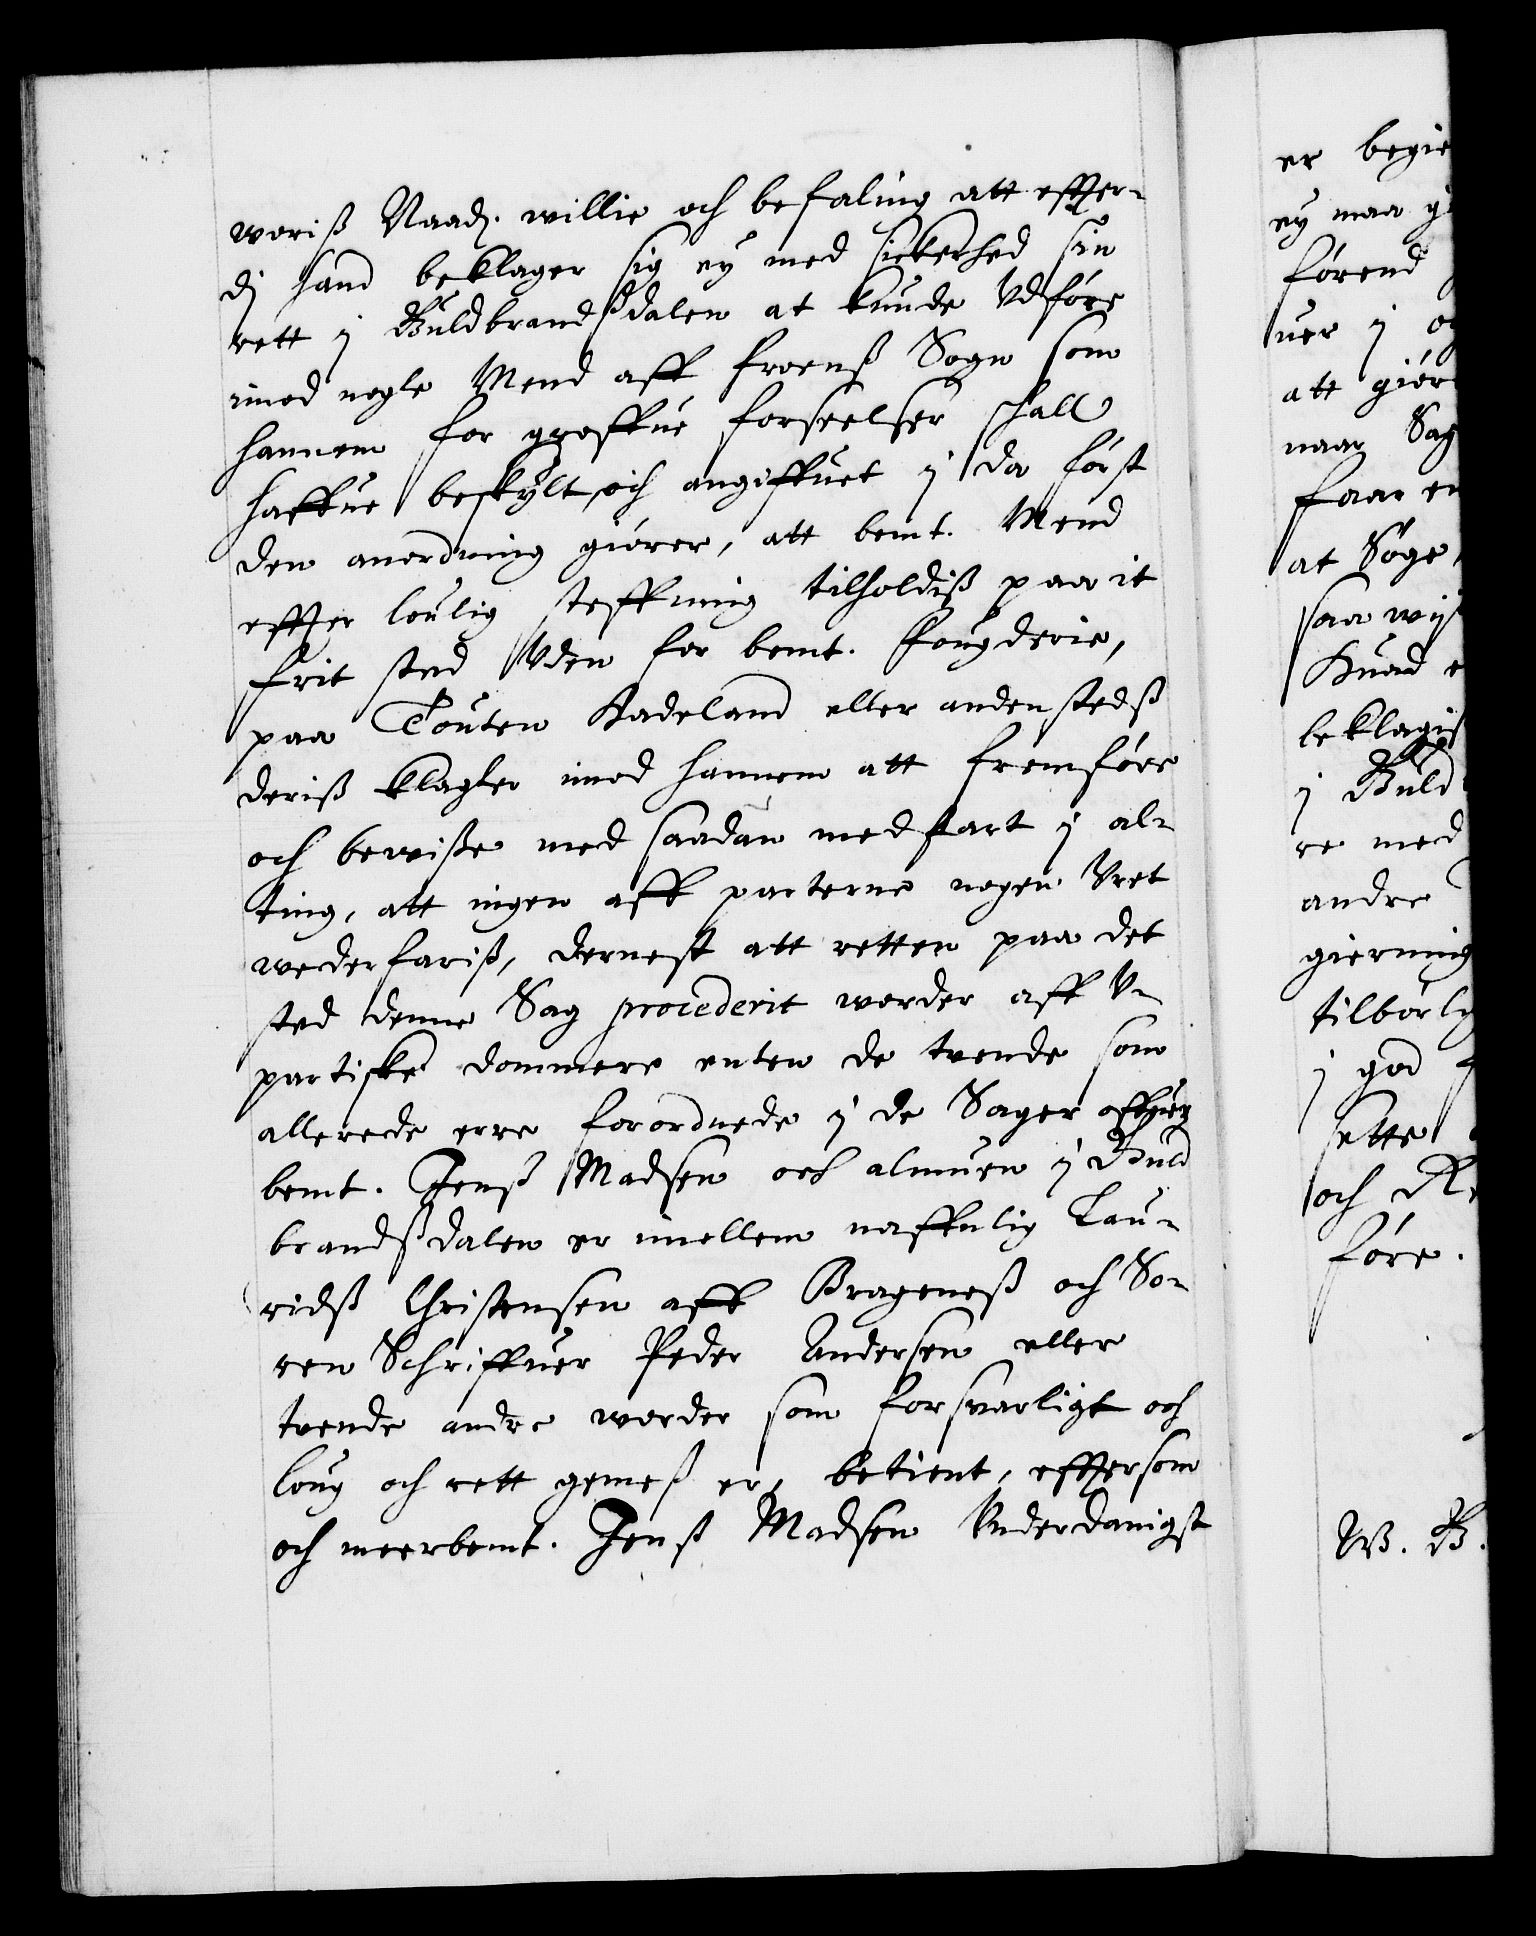 woriß Naad. willie och befaling att effter-
dj hand beklager sig ey med sickerhed sin
rett j Guldbrandßdalen at kunde Vdføre
imod nogle Mend aff froenß Sogn som
hannem for groffue forseelser schall
haffue beskylt, och angiffuet j da først
den anordning giører, att bemt. Mend
effter loulig steffning tilholdiß paa it
frit sted Vden for bemt. fougderie,
paa Touten Hadeland eller andenstedß
deriß klagher imod hannem att fremføre
och bewiße med saadan medfart j al-
ting, att ingen aff parterne nogen Vret
wederfariß, dernest att retten paa det
sted denne Sag procederit worder aff V-
partiske dommere enten de tvende som
allerede erre forordnede j de Sager
bemt. Jenß Madsen och almuen j Guld
brandßdalen er imellem naffnlig Lau-
ridß Christensen aff Brageneß och So-
ren Schriffuer Peder Andersen eller
tvende andre worder som forsvarligt och
loug och rett gemeß er, betient, effter som
och meerbemt. Jenß Madsen Vnderdanigst
er begie
ey maa gi
førend
uer j o
att giør
naar Sag
faar en
at Søge
saa wijt
beklagis
j Guld
re med
andre
gierning
tilbørlg
j god
sette
och
føre.